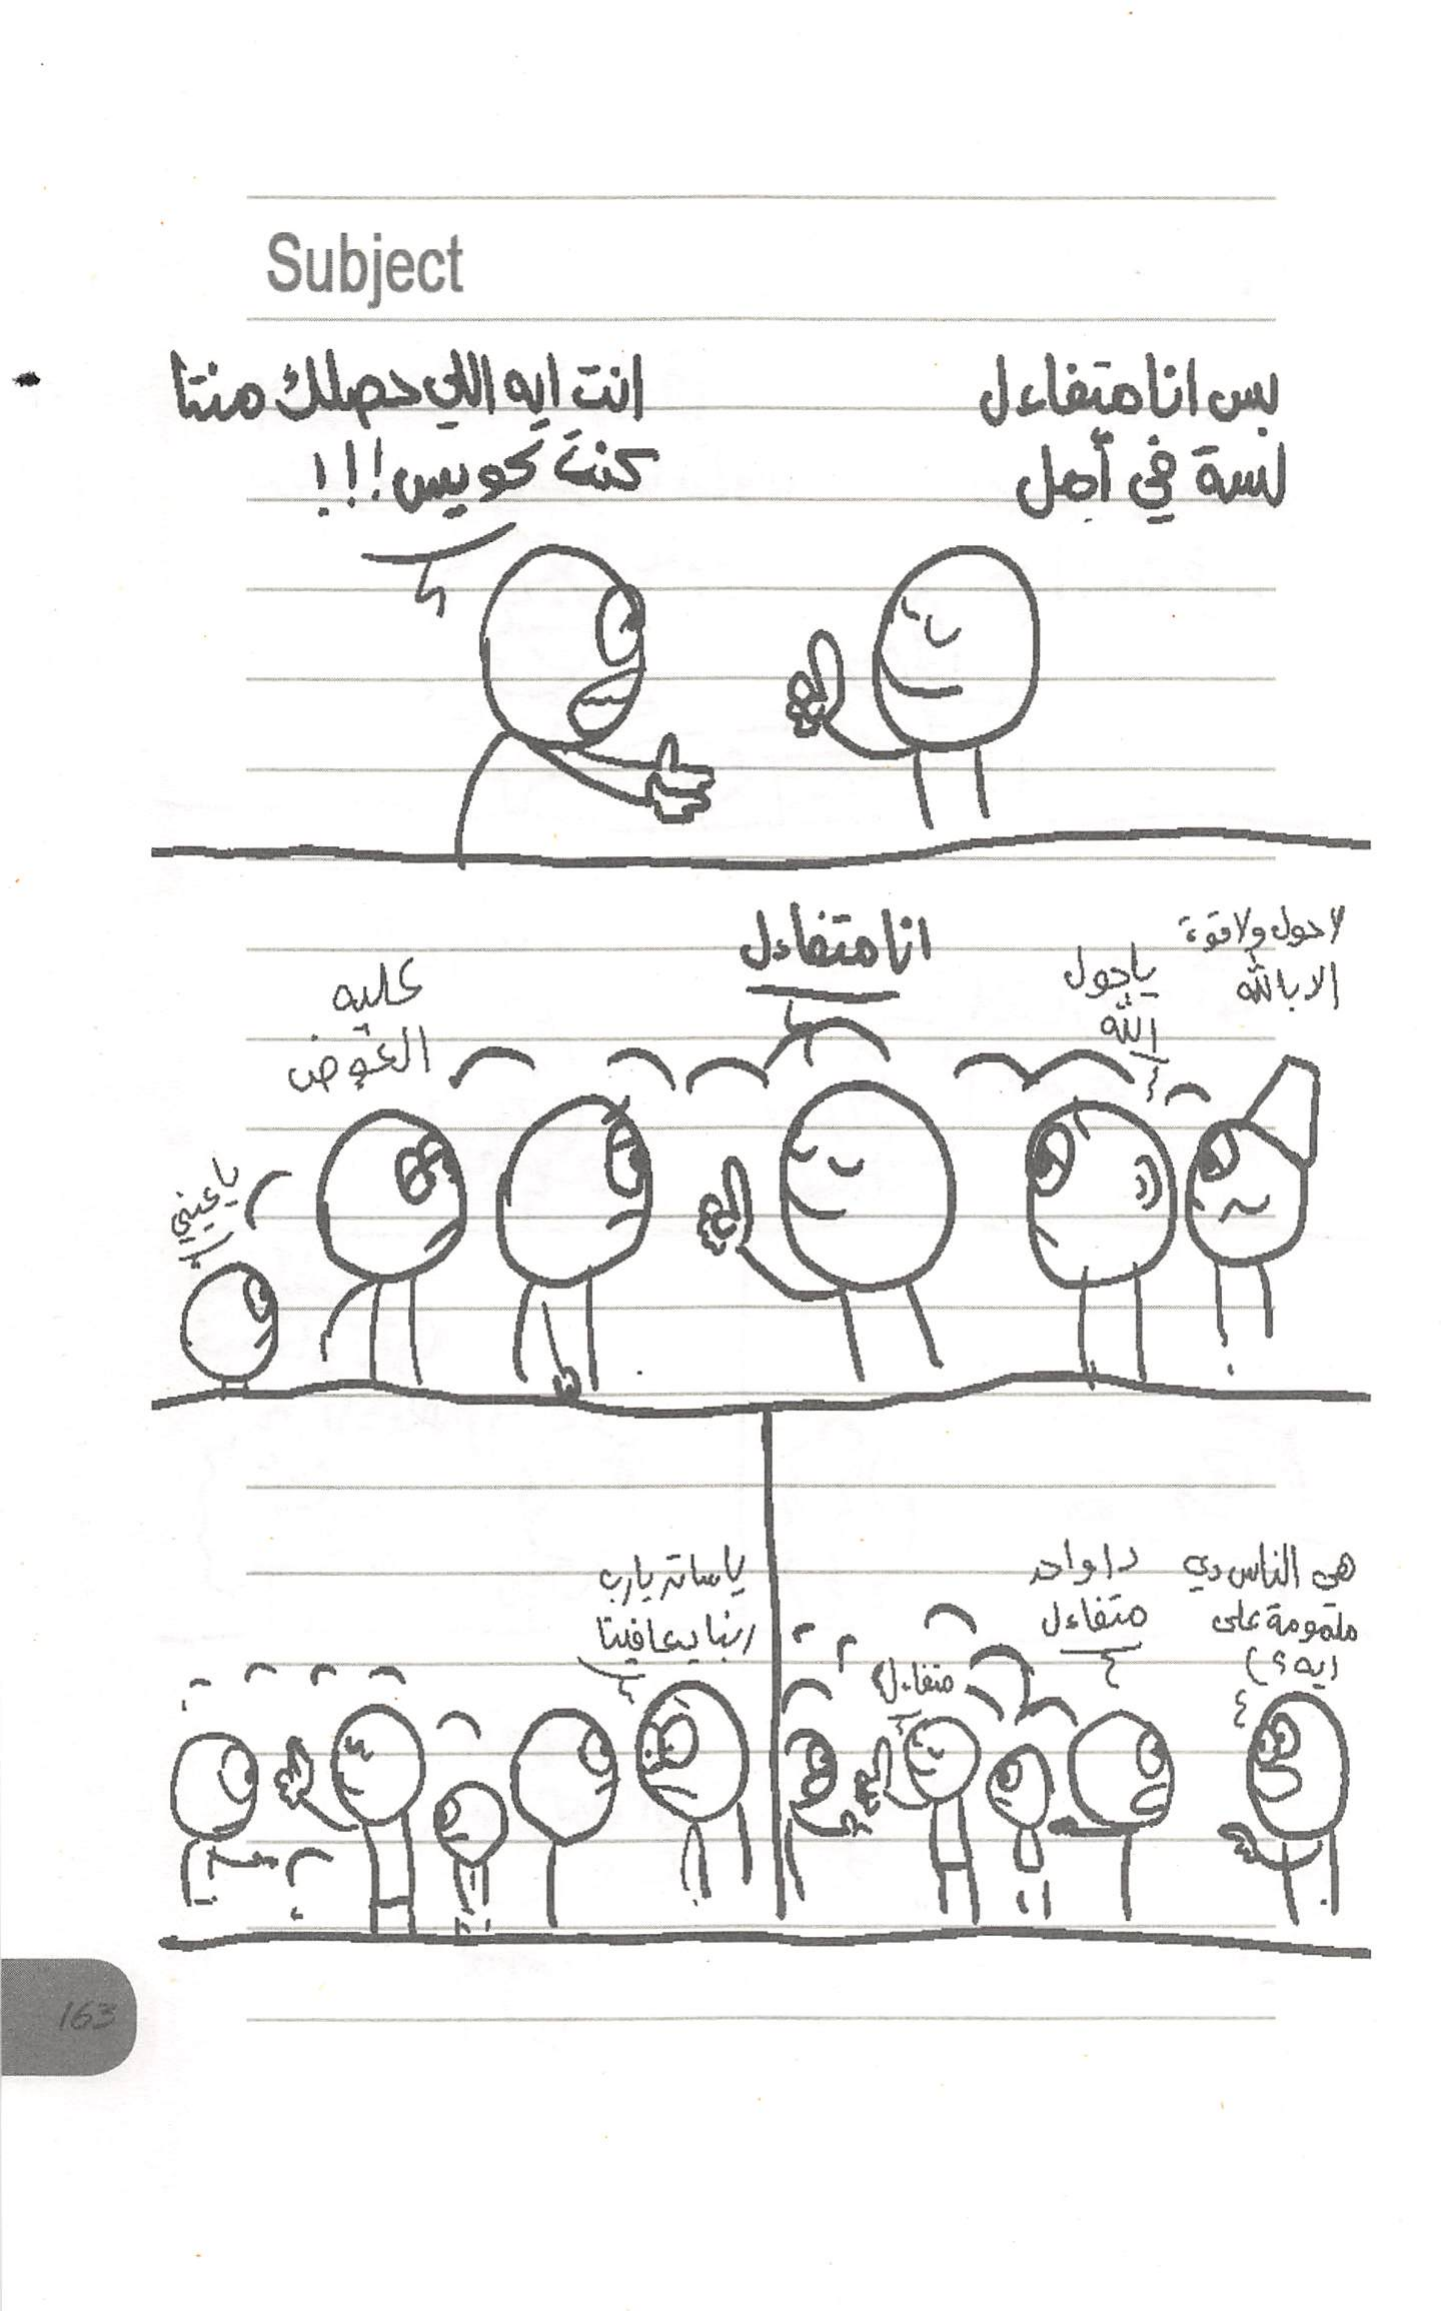 Subject
بس انا متفاءل
لسة في أمل
انت ايه اللي حصلك منتا
كنت كويس!!!
لا حول ولا قوة
الا بالله
يا حول
الله
انا متفاءل
عليه
العوض
يا عيني
هي الناس دي
ملمومة على
ايه؟
دا واحد
متفاءل
متفاءل
يا ساتر يارب
ربنا يعافينا
163